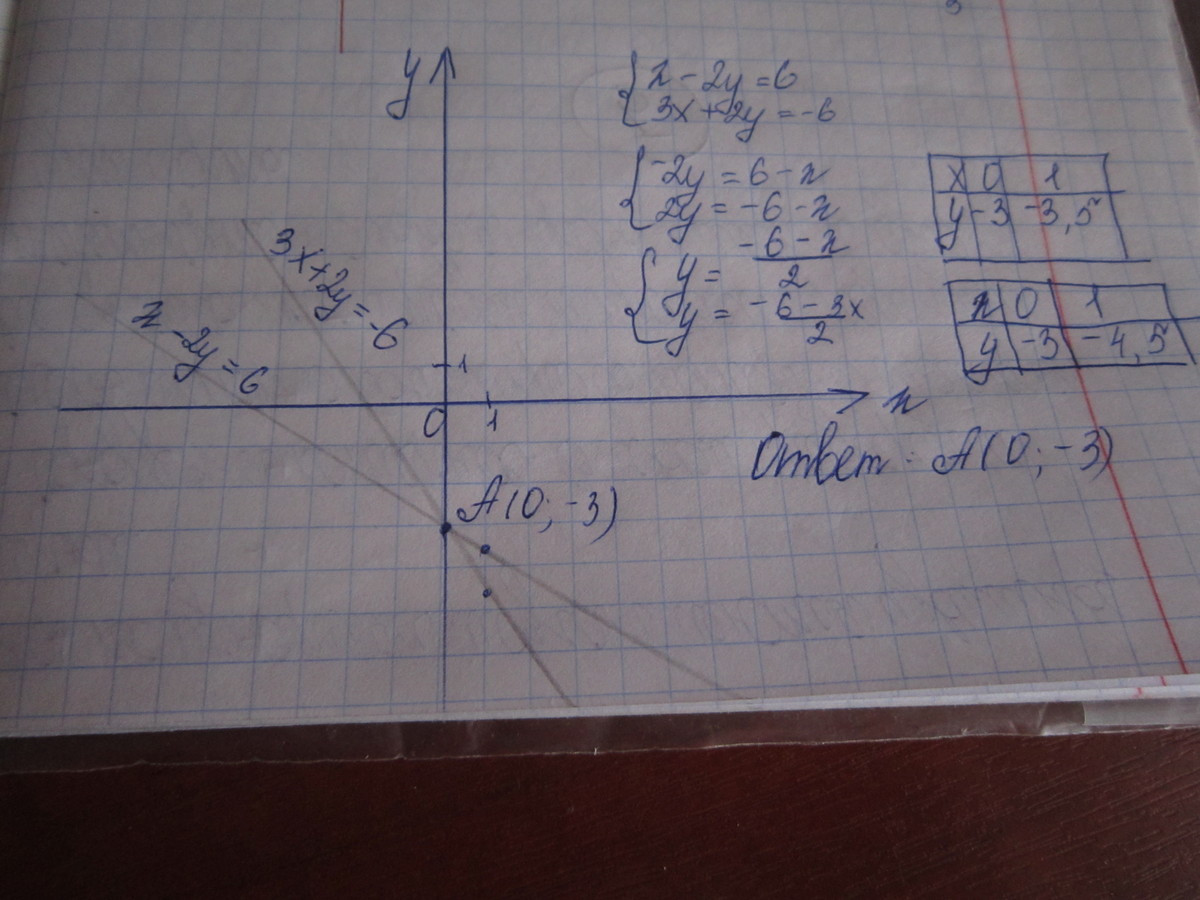 y
{ x - 2y = 6
3x + 2y = -6
{ -2y = 6 - x
2y = -6 - x
{ y = -6 - x / 2
y = -6 - 3x / 2
x 0 1
y -3 -3,5
x 0 1
y -3 -4,5
3x + 2y = -6
x - 2y = 6
1
0 1
x
Ответ: A(0; -3)
A(0; -3)